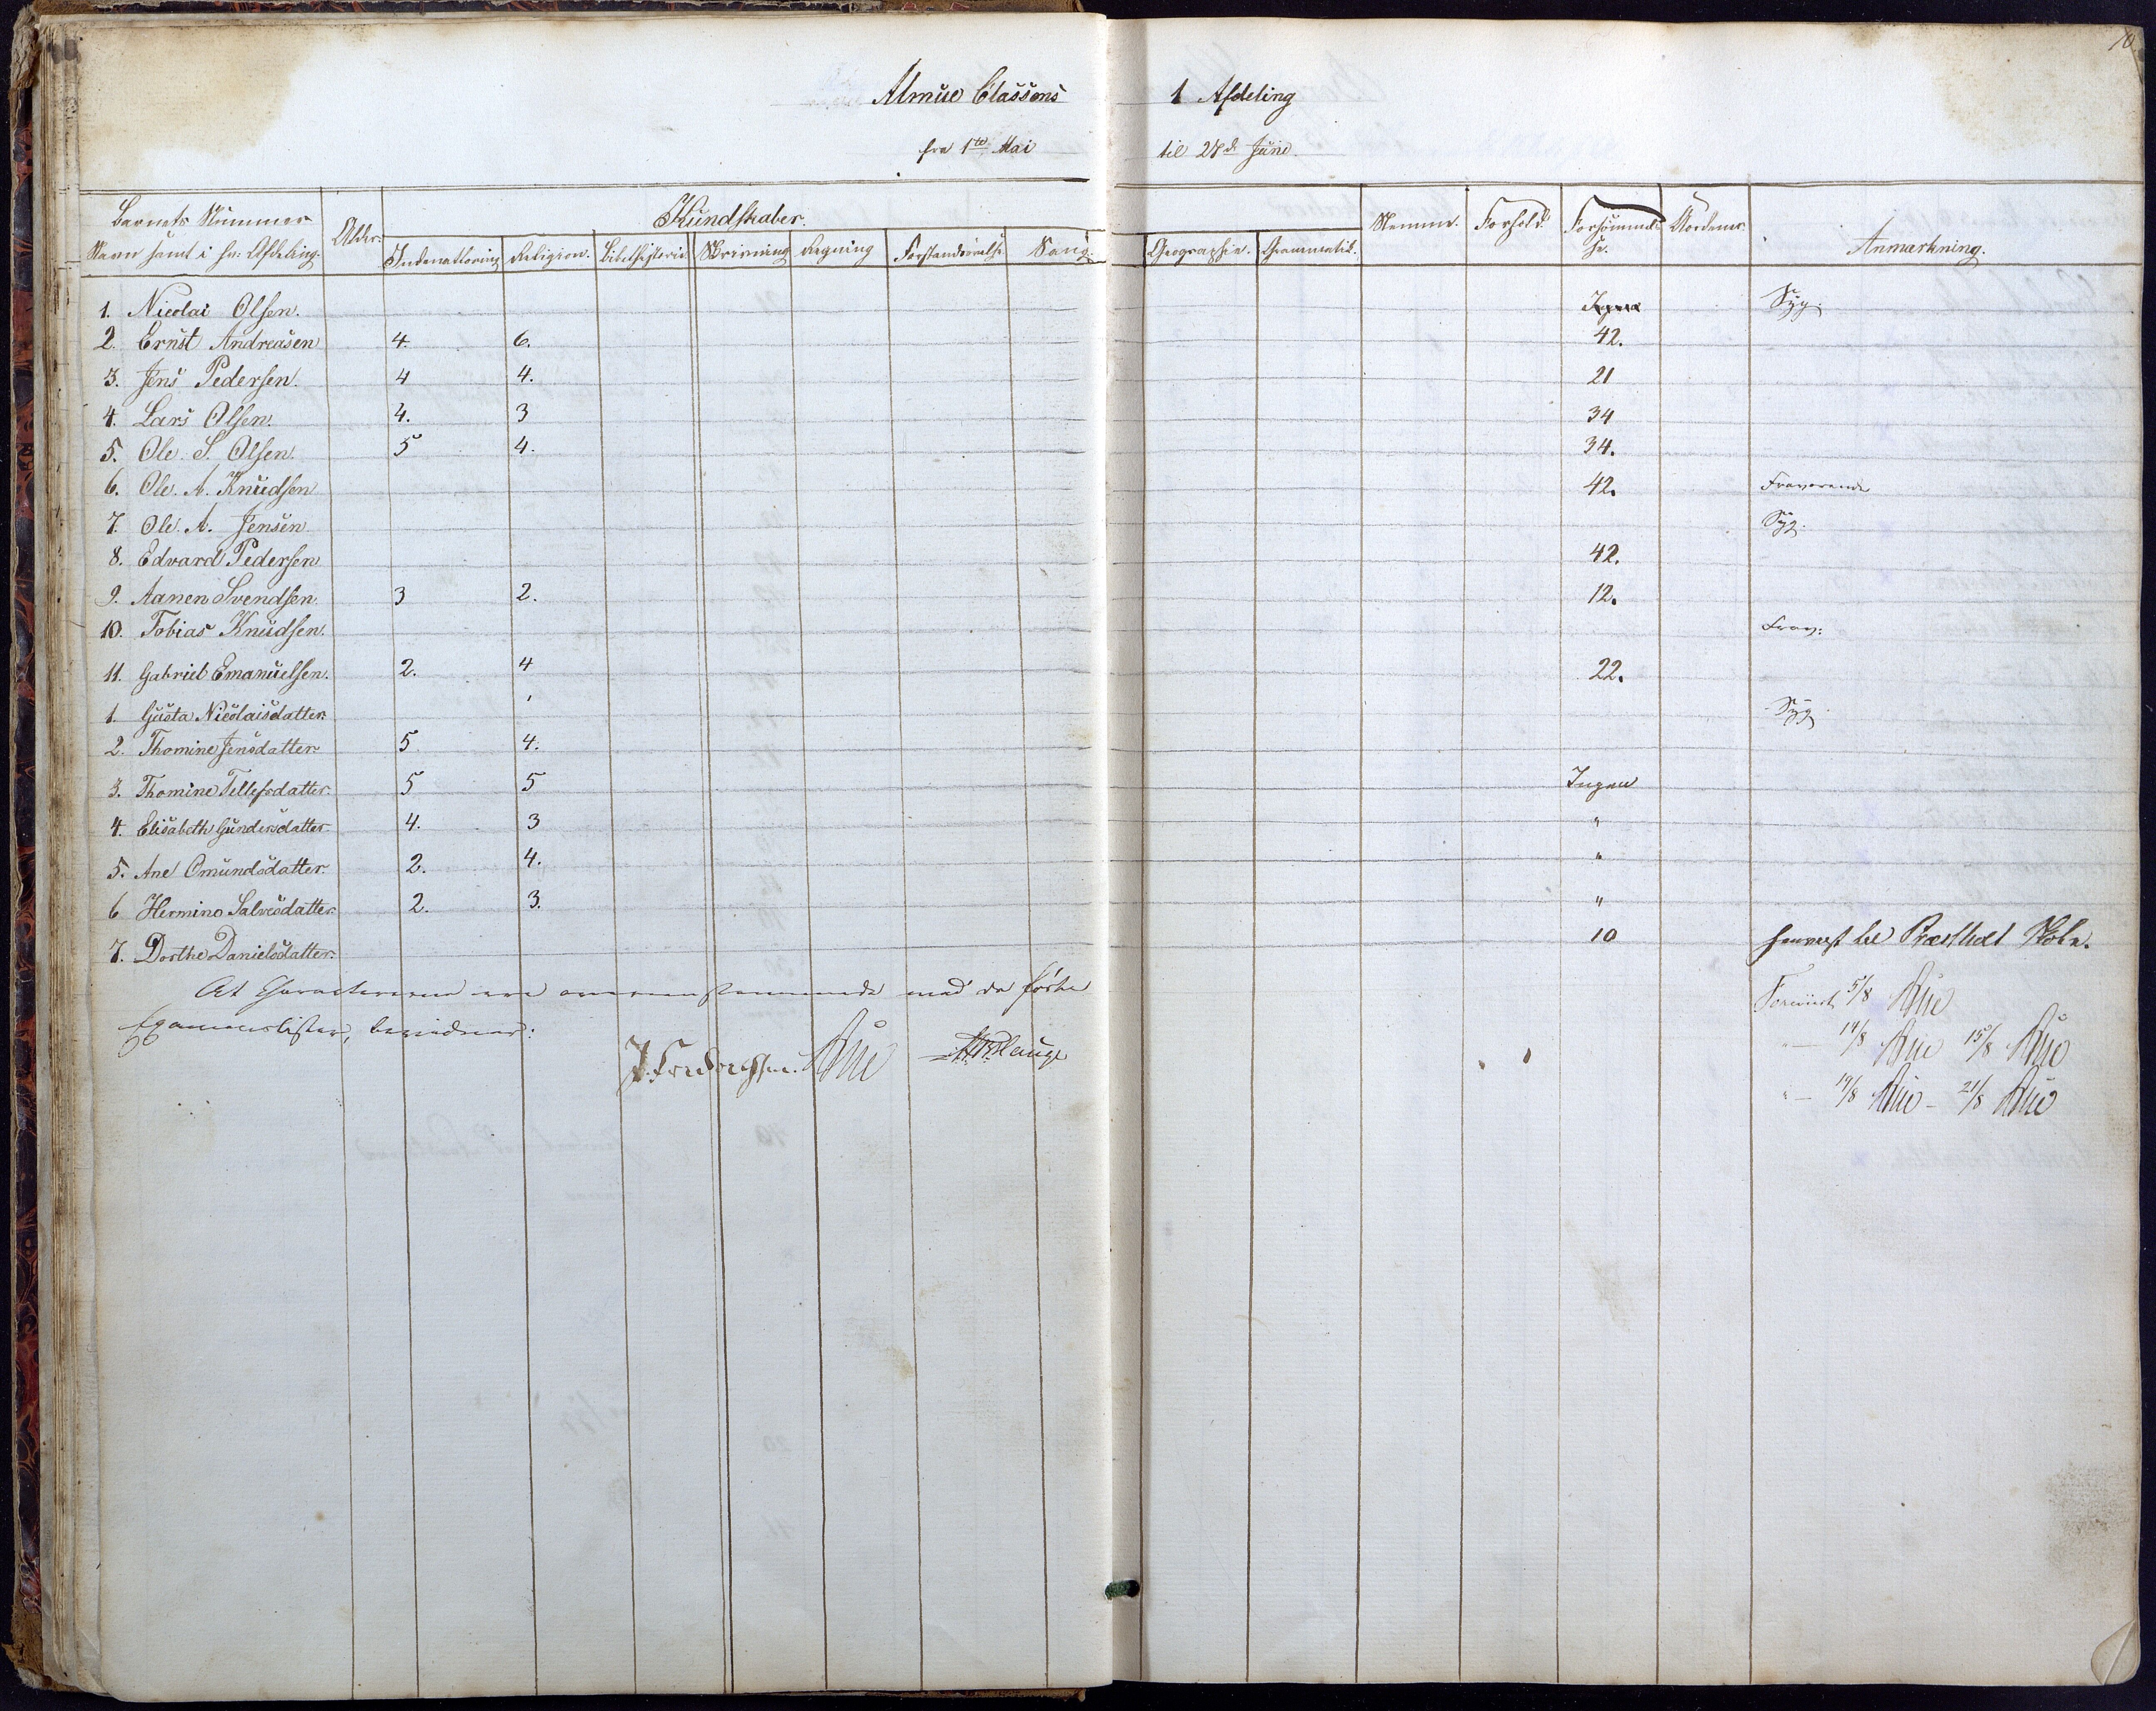 10
Almue Classens 1 Afdeling
fra 1te Mai til 27de Juni.
Barnets Nummer Alder. Kundskaber. Nemme. Forhold. Forsömmel- Ordener. Anmærkning.
Navn samt i hv: Afdeling. Indenadlæsning Religion. Bibelhistorie Skrivning Regning Forstandsövelse Sang. Geographie. Grammatik. se.
1. Nicolai Olsen. Syg.
2. Ernst Andreasen 4. 6. 42.
3. Jens Pedersen. 4 4. 21
4. Lars Olsen. 4. 3 34
5. Ole. S. Olsen. 5 4. 34.
6. Ole. A. Knudsen 42. Fraværende
7. Ole. A. Jensen. Syg.
8. Edvard Pedersen 42.
9. Aanen Svendsen. 3 2. 12.
10. Tobias Knudsen. Frav:
11. Gabriel Emanuelsen. 2. 4 22.
1. Gusta Nicolaisdatter. Syg
2. Thomine Jensdatter 5 4.
3. Thomine Tellefsdatter. 5 5 Ingen
4. Elisabeth Gundersdatter 4. 3 "
5. Ane Omundsdatter. 2. 4. "
6 Hermine Salvesdatter. 2. 3. "
7. Dorthe Danielsdatter. 10 henviist til Præstholt Skole.
At Characterene ere overeensstemmende med de förte
Examenslister, bevidner:
J. Fredrichsen. Aue Hauge
Foreviist 5/8 Aue
" — 14/8 Aue 15/8 Aue
" — 19/8 Aue - 21/8 Aue